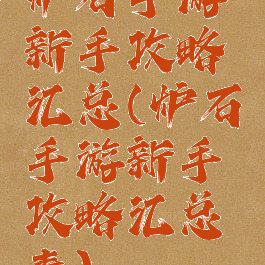 炉石手游
新手攻略
汇总(炉石
手游新手
攻略汇总
表)